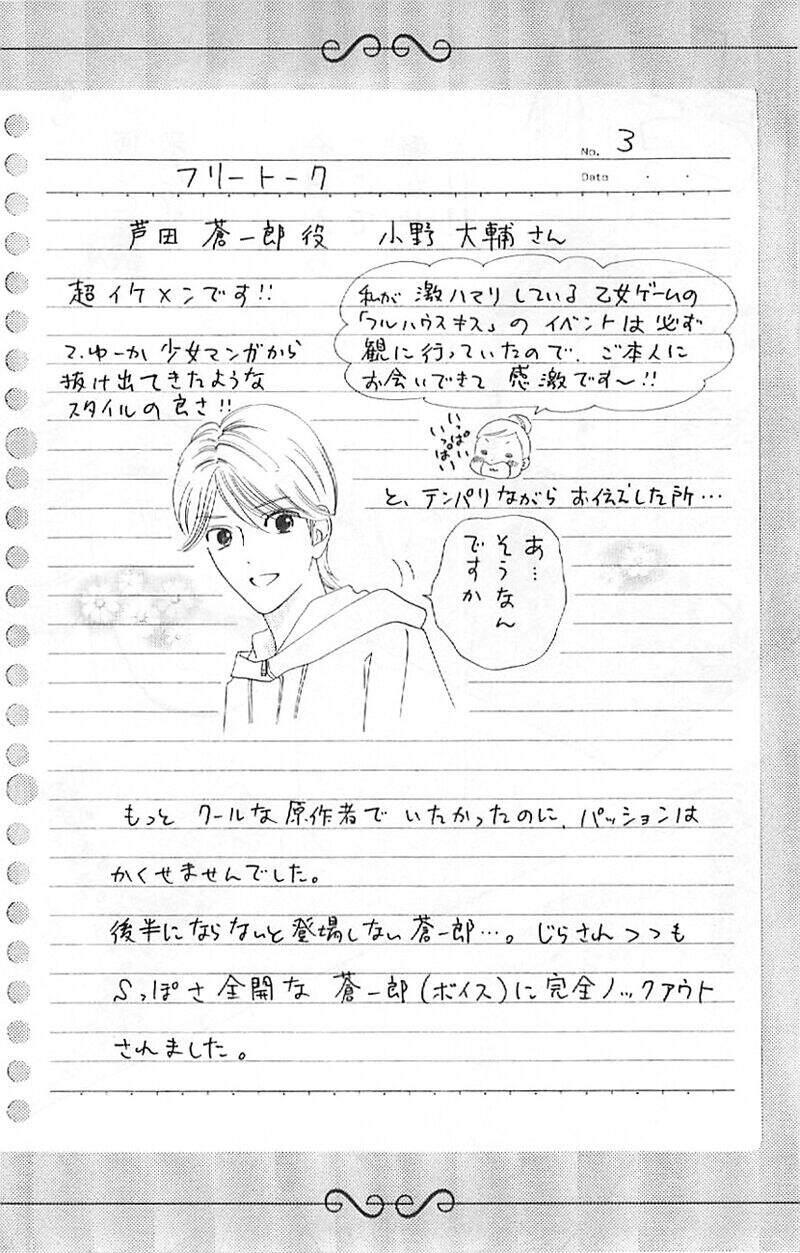 No. 3
Date ・ ・
フリートーク
芦田 蒼一郎役 小野 大輔さん
超イケメンです!!
て.ゆーか 少女マンガから
抜け出てきたような
スタイルの良さ!!
私が 激ハマリしている 乙女ゲームの
「フルハウスキス」の イベントは 必ず
観に行っていたので、ご本人に
お会いできて 感激です〜!!
いっぱい
いっぱい
と、テンパリながら お伝えした所…
あ…
そうなん
ですか
もっと クールな 原作者で いたかったのに、パッションは
かくせませんでした。
後半にならないと登場しない 蒼一郎…。じらさんつつも
Sっぽさ 全開な 蒼一郎(ボイス)に 完全ノックアウト
されました。